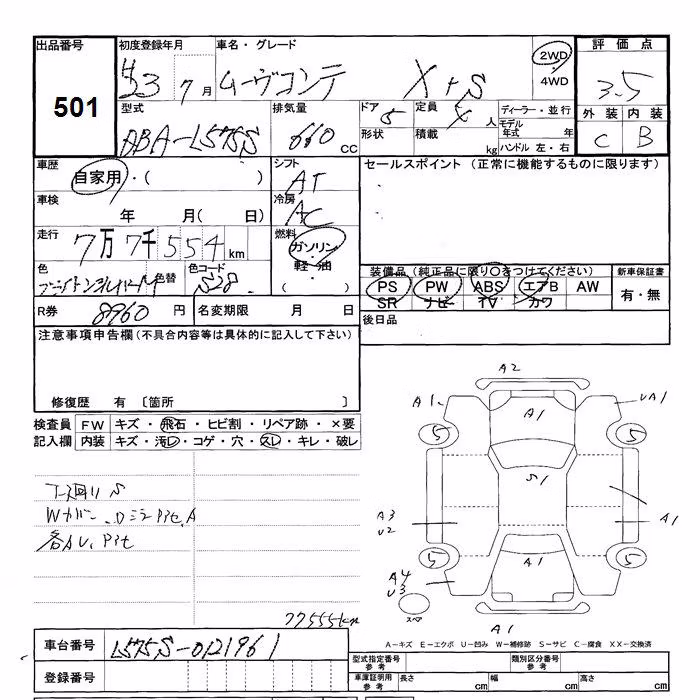 出品番号 初度登録年月 車名・グレード 評価点
501
H23 7月 ムーヴコンテ X+S 2WD 4WD 3.5
型式 排気量 ドア 定員 ディーラー・並行 外装 内装
DBA-L575S 660 CC 5 人 モデル年式 年 C B
形状 積載 kg ハンドル 左・右
車歴 シフト セールスポイント(正常に機能するものに限ります)
自家用・( ) AT
車検 冷房
年 月( 日) AC
走行 燃料
7万7千554km ガソリン・軽油
色 色替 色コード 装備品(純正品に限り○をつけてください) 新車保証書
S28 PS PW ABS エアB AW 有・無
SR ナビー TV カワ
R券 8960円 名変期限 月 日 後日品
注意事項申告欄(不具合内容等は具体的に記入して下さい)
修復歴 有 〔箇所 〕
検査員 FW キズ・飛石・ヒビ割・リペア跡・×要
記入欄 内装 キズ・汚レ・コゲ・穴・スレ・キレ・破レ
下廻り S
Wカバー
A2
A1 A1 UA1
5 5
S1
A3 U2 A1
5 5
A4 U3 A1
スペア
A1
77555km
A-キズ E-エクボ U-凹み W-補修跡 S-サビ C-腐食 XX-交換済
車台番号 L575S-0121961
型式指定番号 参考 類別区分番号 参考
登録番号
車庫証明用 参考 長さ cm 幅 cm 高さ cm